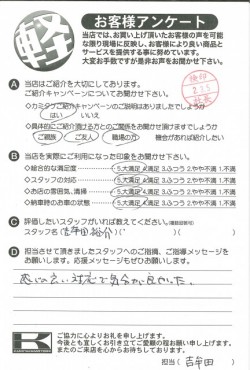 軽
お客様アンケート
当店では、お買い上げ頂いたお客様の声を可能な
限り現場に反映し、お客様により良い商品と
サービスを提供する事に努めています。
大変お手数ですが是非お声をお聞かせ下さい。
A 当店はご紹介を大切にしております。
ご紹介キャンペーンについてお聞かせ下さい。
◇カミタケご紹介キャンペーンのご説明はありましたでしょうか
はい いいえ
◇具体的にご紹介頂ける方とのご関係をお聞かせ頂けますでしょうか
ご親族 ご友人 職場の方 機会があれば紹介したい
B 当店を実際にご利用になった印象をお聞かせ下さい。
◇総合的な満足度 5.大満足 4.満足 3.ふつう 2.やや不満 1.不満
◇スタッフの対応 5.大満足 4.満足 3.ふつう 2.やや不満 1.不満
◇お店の雰囲気、清掃 5.大満足 4.満足 3.ふつう 2.やや不満 1.不満
◇納車時のお車の状態 5.大満足 4.満足 3.ふつう 2.やや不満 1.不満
C 評価したいスタッフがいれば教えてください。(複数回答可)
スタッフ名( 吉牟田 )
D 担当させて頂きましたスタッフへのご指摘、ご指導メッセージを
お願いします。応援メッセージもぜひお願いします!
感じの良い対応で気分が良かった。
ご協力に心よりお礼を申し上げます。
今後とも宜しくお引き立てご愛顧の程お願い申し上げます。
またのご来店を心からお待ちしております。
担当( 吉牟田 )